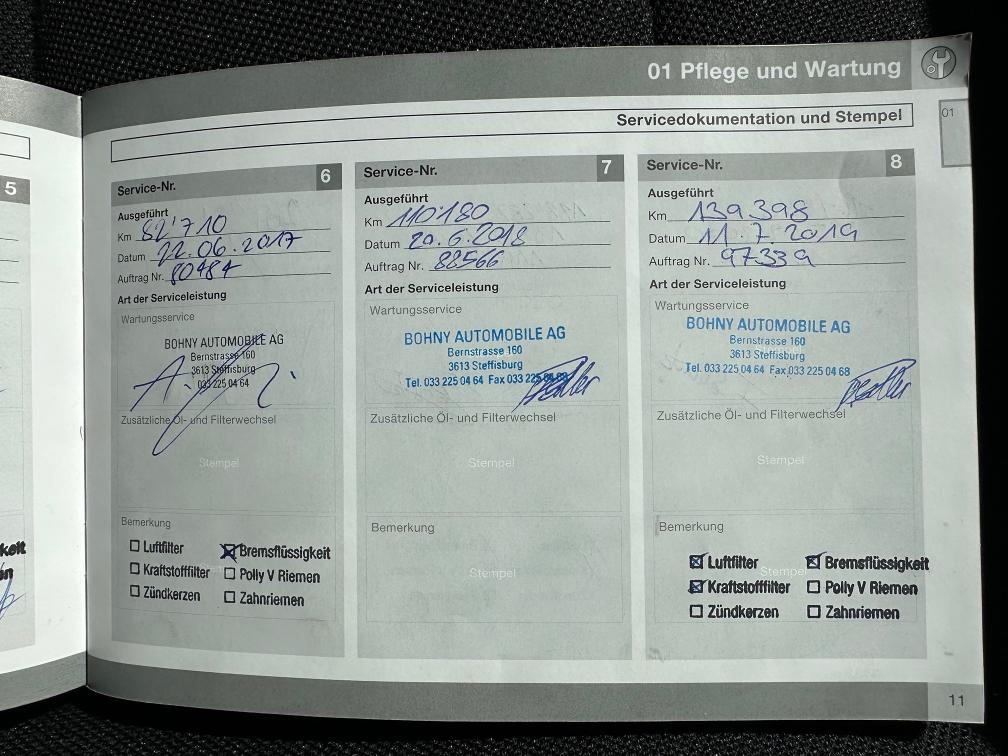 01 Pflege und Wartung
01
Servicedokumentation und Stempel
5
Service-Nr. 6
Ausgeführt
Km 82'710
Datum 22.06.2017
Auftrag Nr. 80484
Art der Serviceleistung
Wartungsservice
BOHNY AUTOMOBILE AG
Bernstrasse 160
3613 Steffisburg
033 225 04 64
Zusätzliche Öl- und Filterwechsel
Stempel
Bemerkung
☐ Luftfilter ☒ Bremsflüssigkeit
☐ Kraftstofffilter ☐ Polly V Riemen
☐ Zündkerzen ☐ Zahnriemen
Service-Nr. 7
Ausgeführt
Km 110'180
Datum 20.6.2018
Auftrag Nr. 88566
Art der Serviceleistung
Wartungsservice
BOHNY AUTOMOBILE AG
Bernstrasse 160
3613 Steffisburg
Tel. 033 225 04 64 Fax 033 225 04 68
Zusätzliche Öl- und Filterwechsel
Stempel
Bemerkung
Stempel
Service-Nr. 8
Ausgeführt
Km 139398
Datum 11.7.2019
Auftrag Nr. 97339
Art der Serviceleistung
Wartungsservice
BOHNY AUTOMOBILE AG
Bernstrasse 160
3613 Steffisburg
Tel. 033 225 04 64 Fax 033 225 04 68
Zusätzliche Öl- und Filterwechsel
Stempel
Bemerkung
Stempel
☒ Luftfilter ☒ Bremsflüssigkeit
☒ Kraftstofffilter ☐ Polly V Riemen
☐ Zündkerzen ☐ Zahnriemen
11